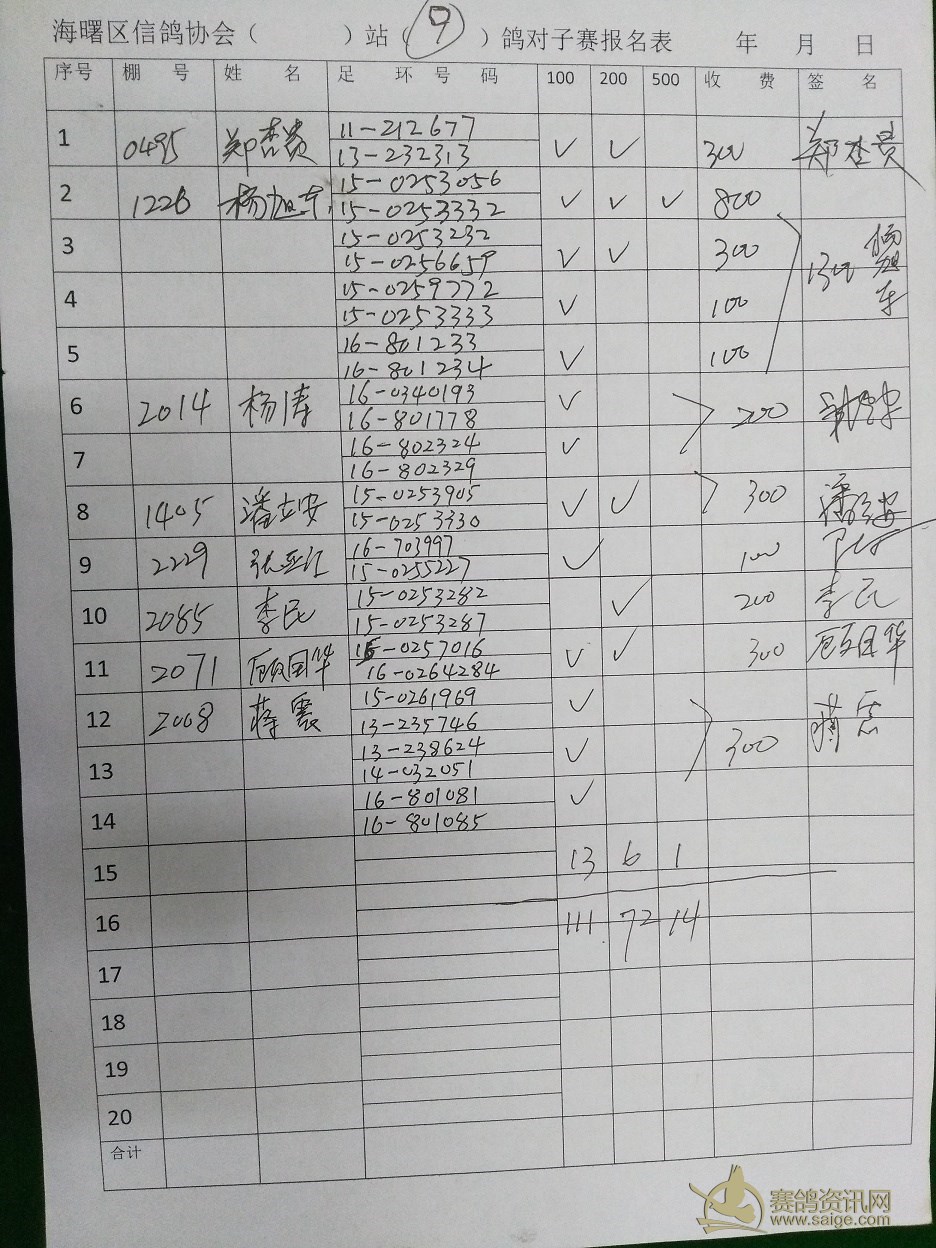 海曙区信鸽协会（ ）站（9）鸽对子赛报名表 年 月 日
序号 棚号 姓名 足环号码 100 200 500 收费 签名
1 0495 郑杏贵 11-212677 ✓ ✓ 300 郑杏贵
13-232313
2 1226 杨旭东 15-0253056 ✓ ✓ ✓ 800
15-0253332
3 15-0253232 ✓ ✓ 300 1300 杨旭东
15-0256659
4 15-0259772 ✓ 100
15-0253333
5 16-801233 ✓ 100
16-801234
6 2014 杨涛 16-0340193 ✓ 200
16-801778
7 16-802324 ✓
16-802329
8 1405 潘立安 15-0253905 ✓ ✓ 300 潘立安
15-0253330
9 2229 张亚江 16-703997 ✓ 100
15-0255227
10 2085 李民 15-0253282 ✓ 200 李民
15-0253287
11 2071 顾国华 15-0257016 ✓ ✓ 300 顾国华
16-0264284
12 2008 蒋震 15-0261969 ✓ 300 蒋震
13-235746
13 13-238624 ✓
14-032051
14 16-801081 ✓
16-801085
15 13 6 1
16 111 72 14
17
18
19
20
合计
赛鸽资讯网
www.saige.com